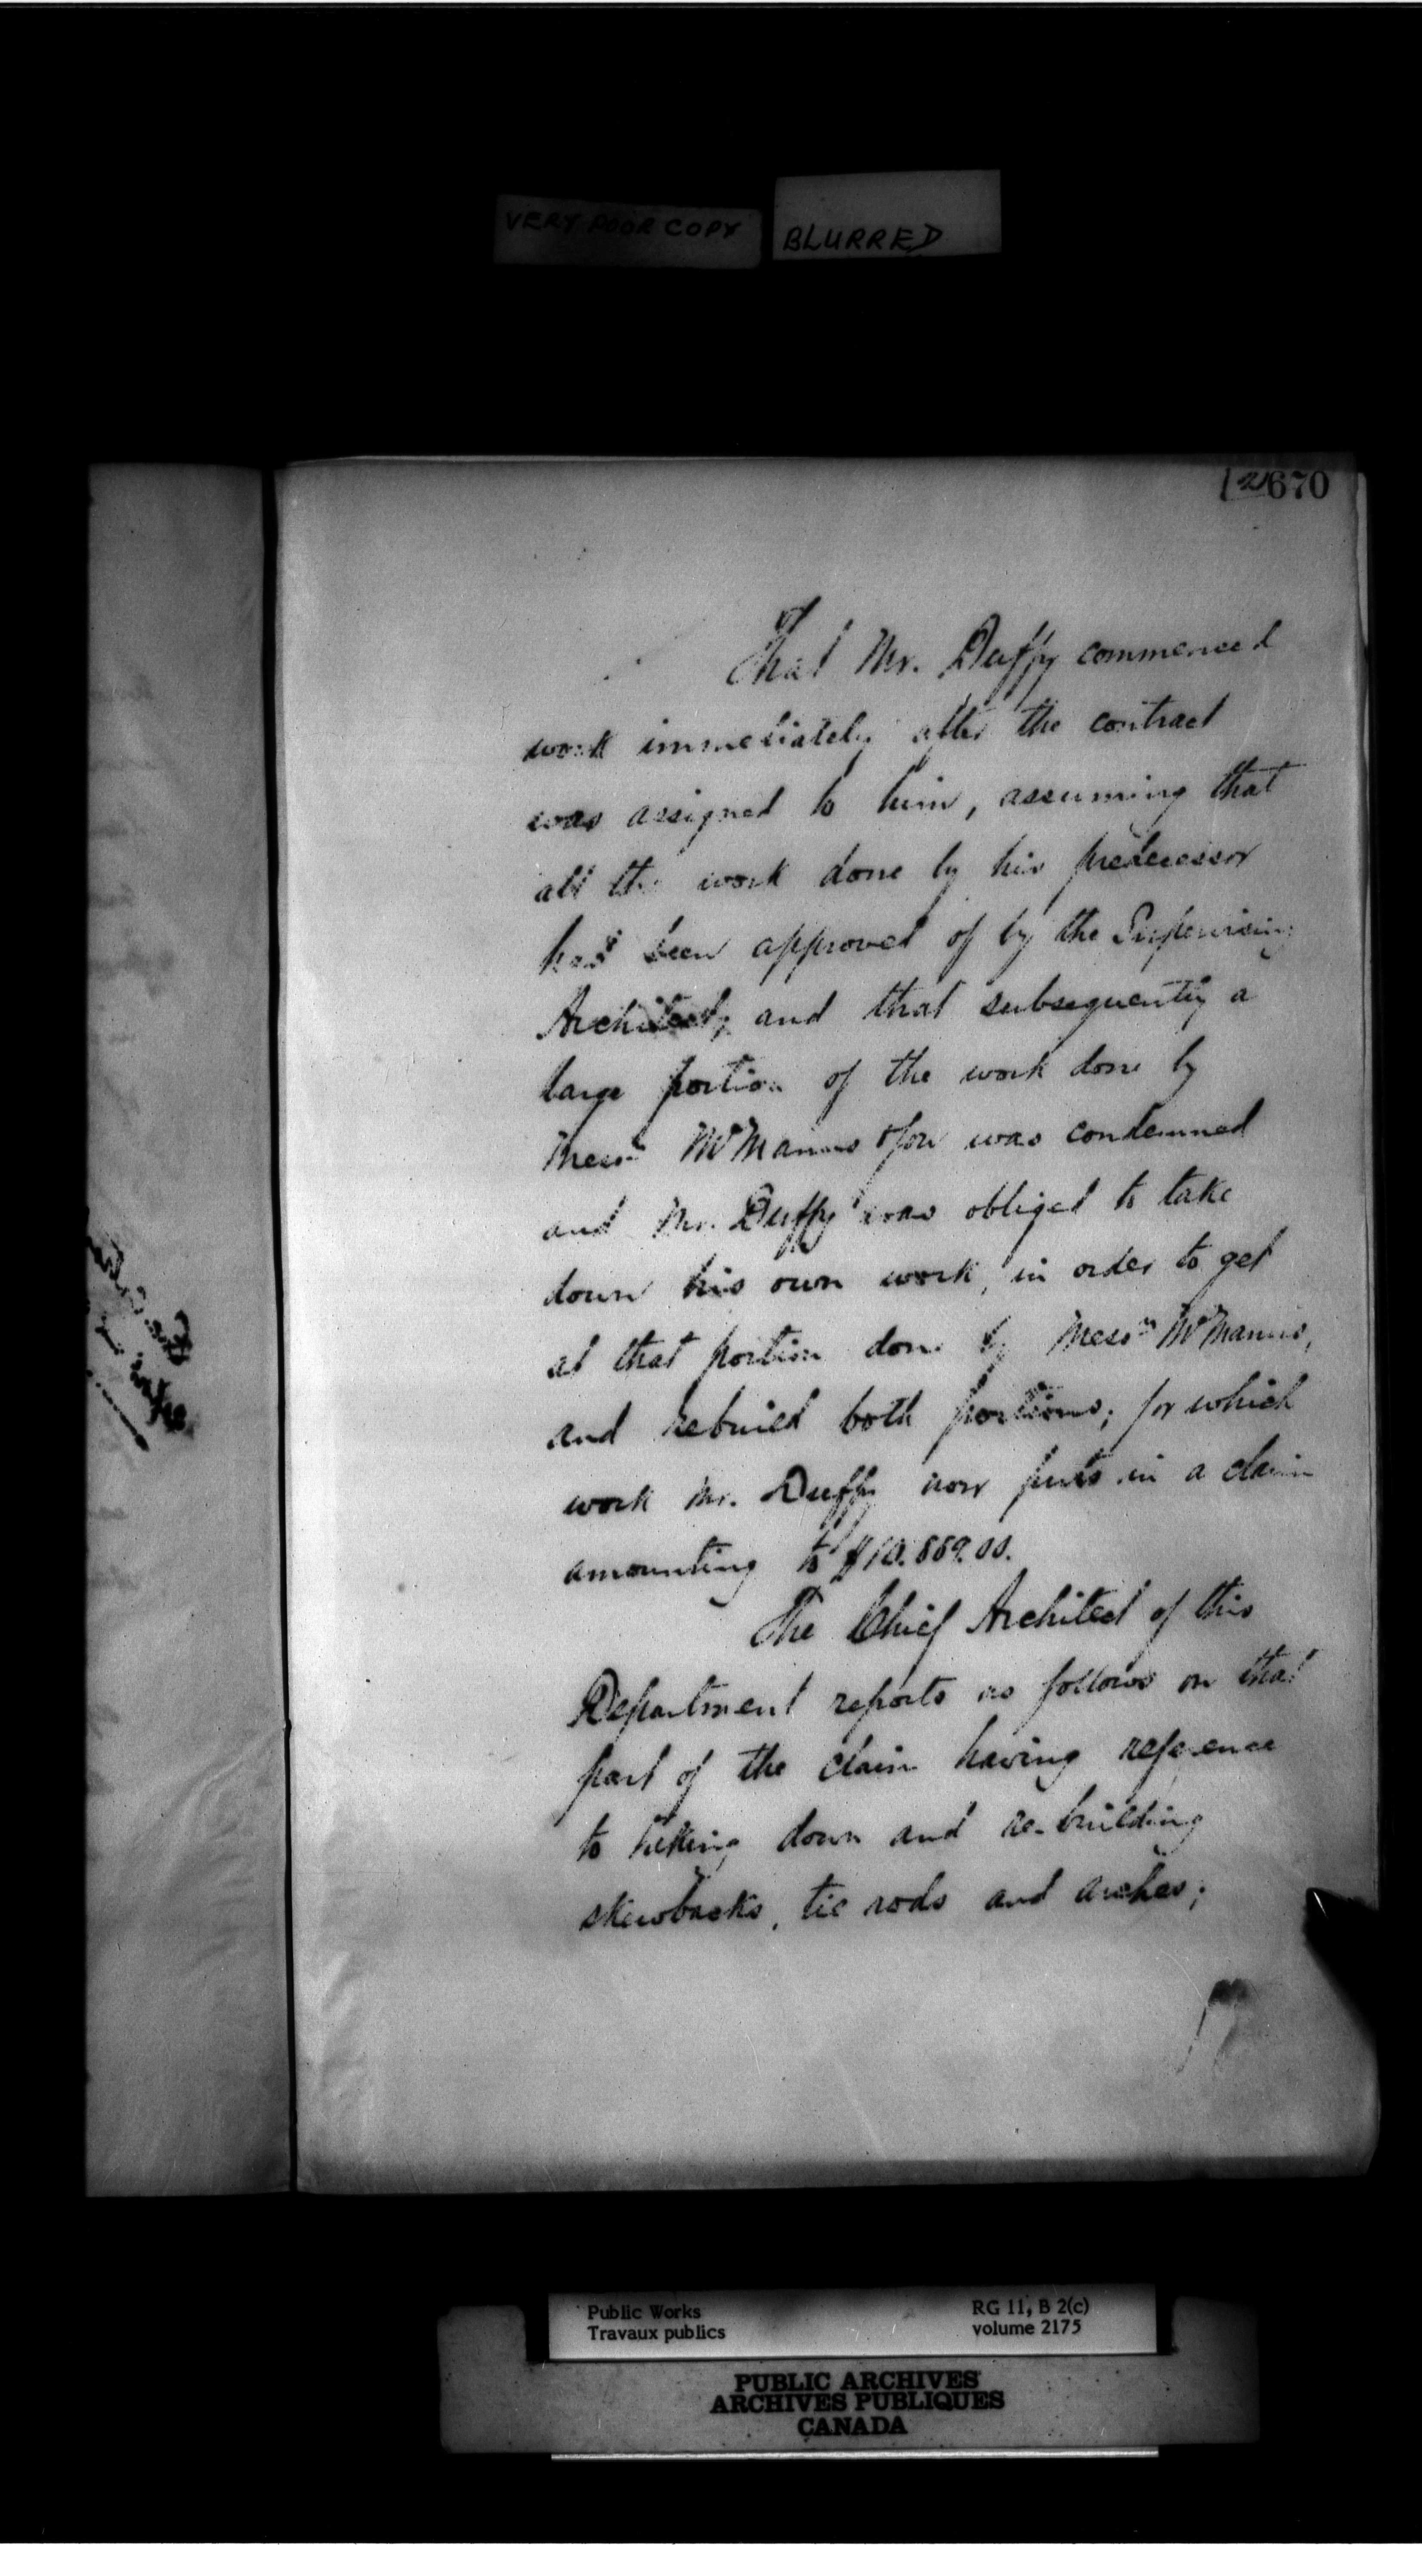 VERY POOR COPY
BLURRED
670
That Mr. Duffy commenced
work immediately after the contract
was assigned to him, assuming that
all the work done by his predecessor
had been approved of by the Supervising
Architect; and that subsequently a
large portion of the work done by
Messrs McManus was condemned
and Mr. Duffy was obliged to take
down his own work, in order to get
at that portion done by Messrs McManus,
and rebuild both portions; for which
work Mr. Duffy now puts in a claim
amounting to
The Chief Architect of this
Department reports as follows on that
part of the claim having reference
to taking down and re-building
skewbacks, tie rods and arches;
Public Works
Travaux publics
RG 11, B 2(c)
volume 2175
PUBLIC ARCHIVES
ARCHIVES PUBLIQUES
CANADA